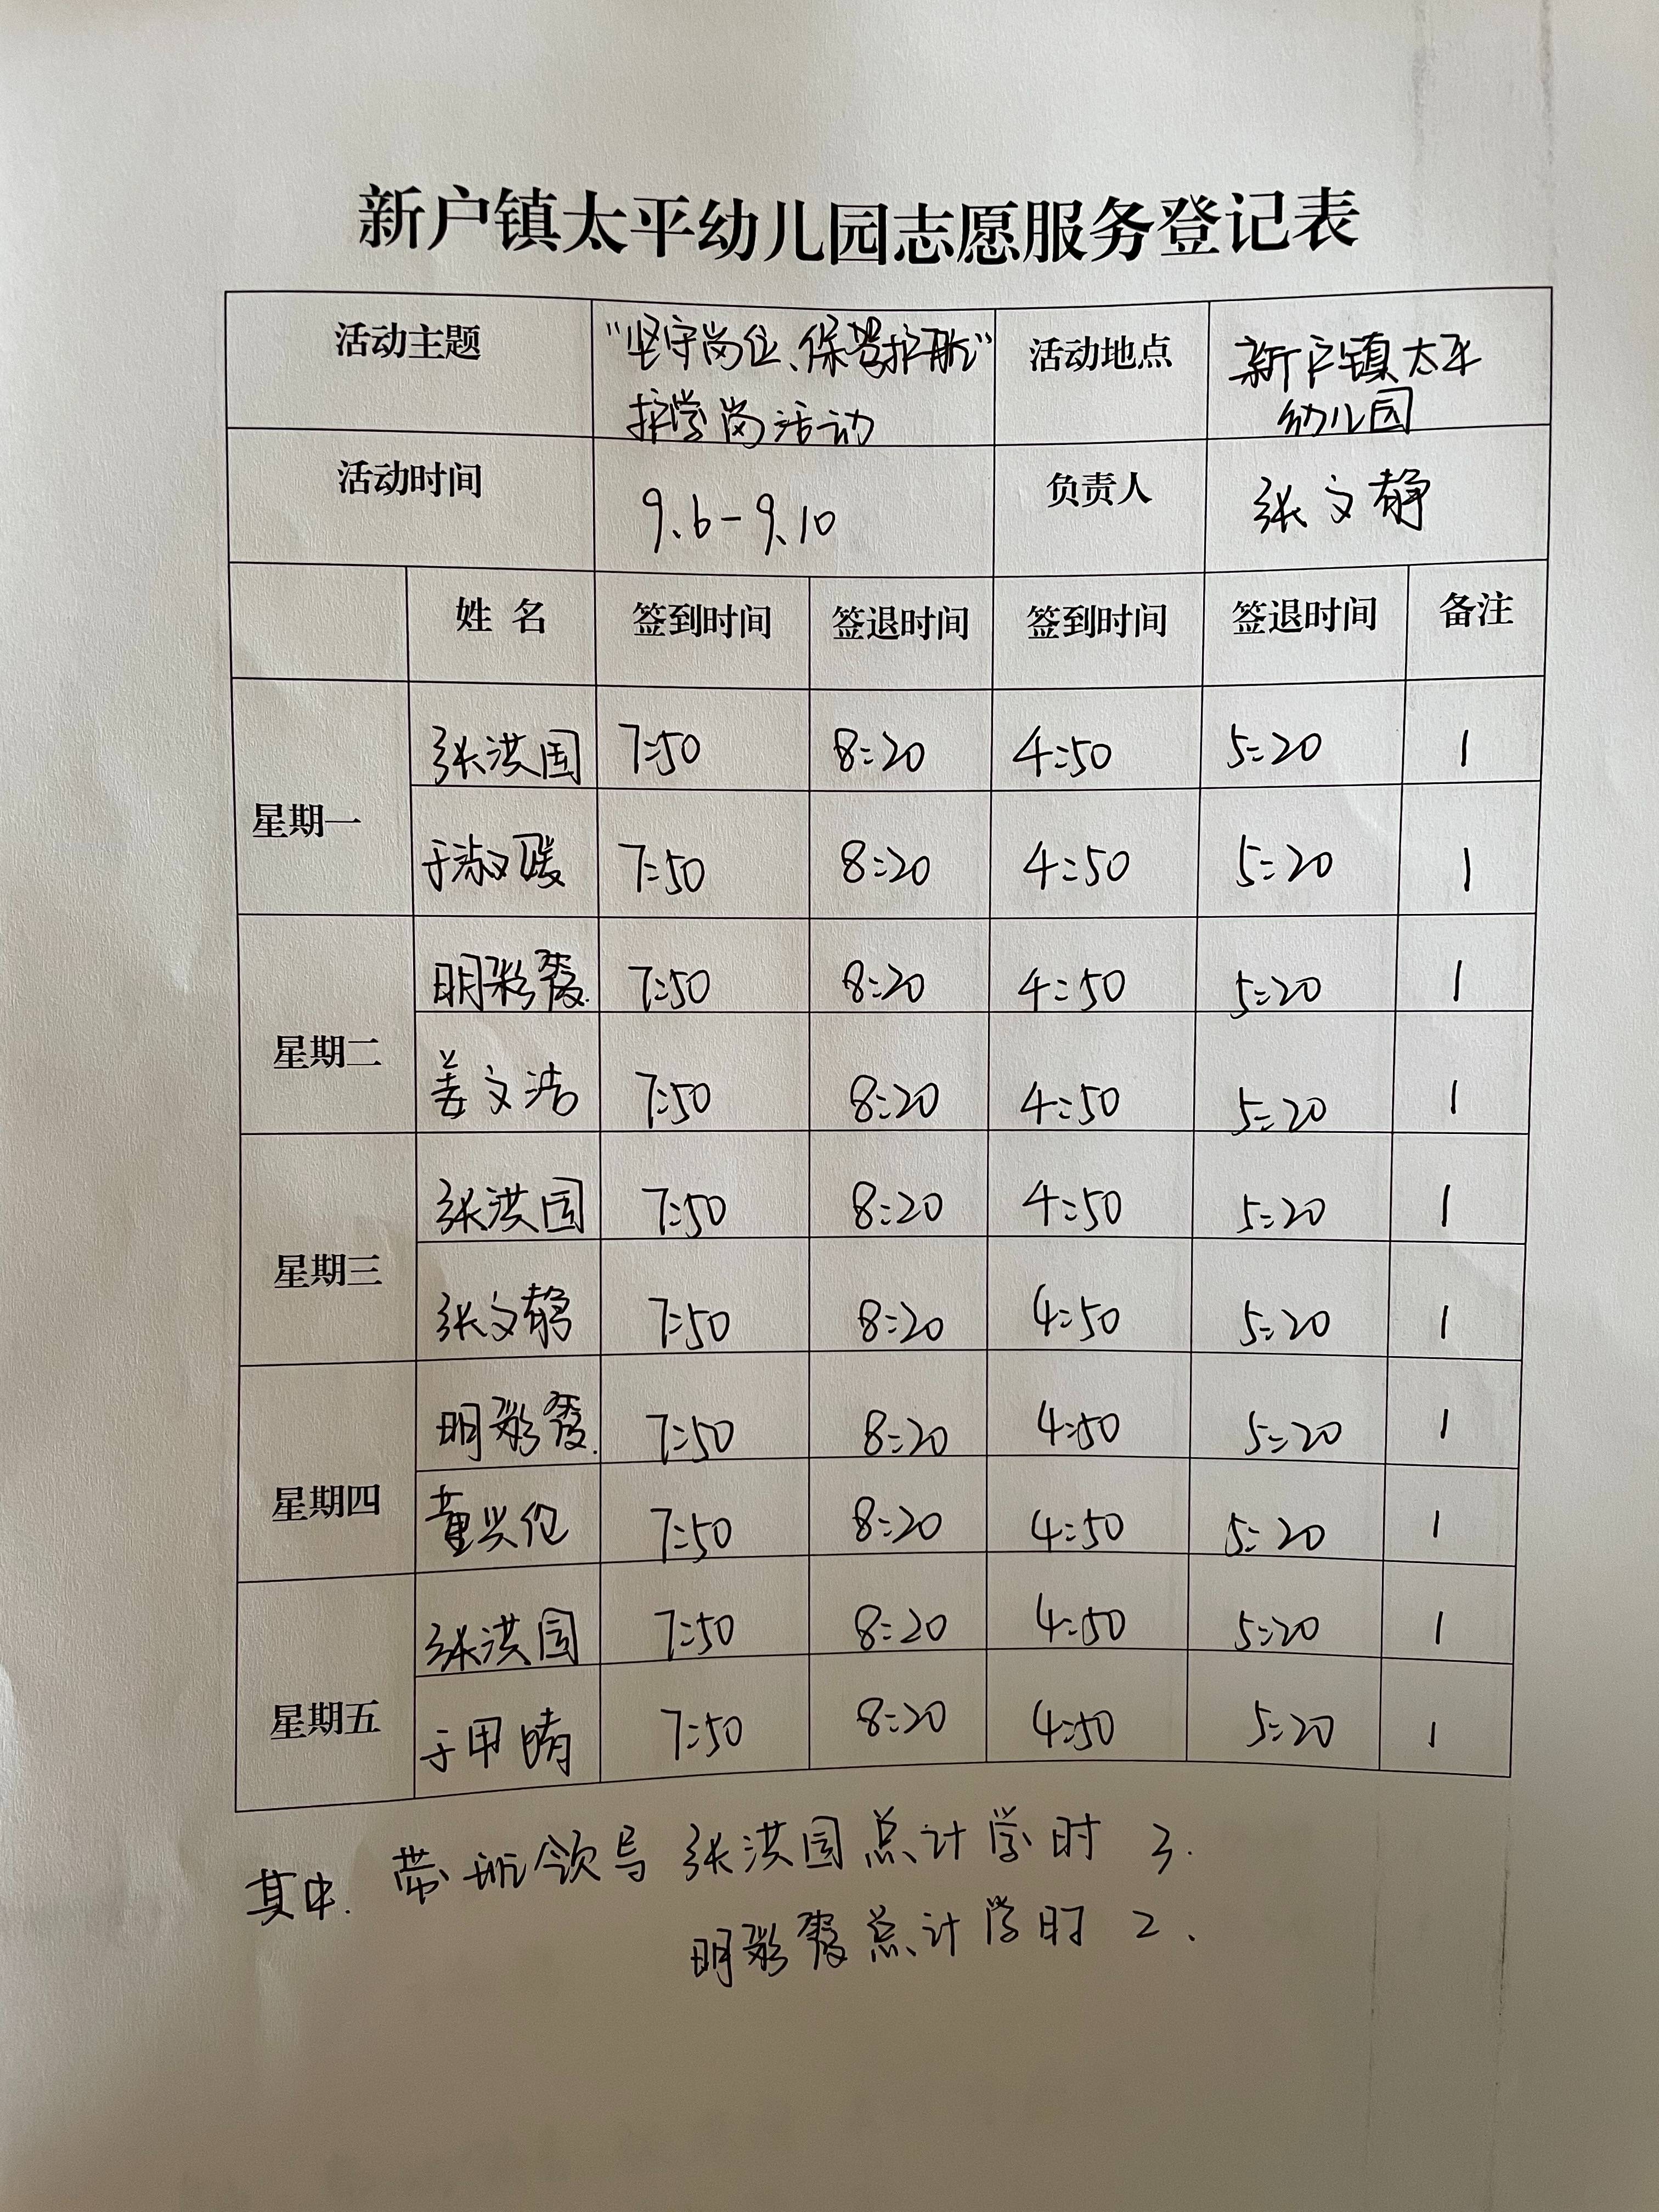 新户镇太平幼儿园志愿服务登记表
活动主题 “坚守岗位、保驾护航” 活动地点 新户镇太平
护学岗活动 幼儿园
活动时间 9.6-9.10 负责人 张文静
姓 名 签到时间 签退时间 签到时间 签退时间 备注
张洪国 7:50 8:20 4:50 5:20 1
星期一
于淑媛 7:50 8:20 4:50 5:20 1
明彩 7:50 8:20 4:50 5:20 1
星期二
姜文洁 7:50 8:20 4:50 5:20 1
张洪国 7:50 8:20 4:50 5:20 1
星期三
张文静 7:50 8:20 4:50 5:20 1
明彩 7:50 8:20 4:50 5:20 1
星期四
董兴伦 7:50 8:20 4:50 5:20 1
张洪国 7:50 8:20 4:50 5:20 1
星期五
于甲晴 7:50 8:20 4:50 5:20 1
其中. 带班领导 张洪国总计学时 3.
明彩 总计学时 2.